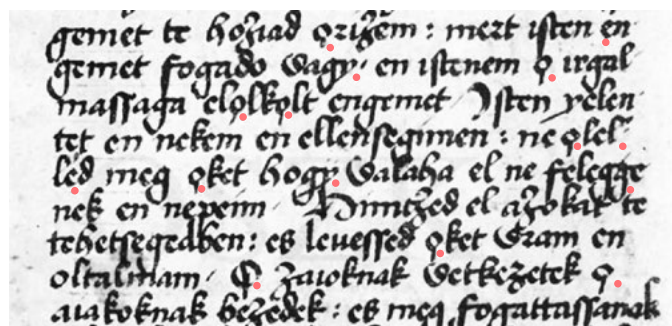 gemet te hoziad ǫrizem : mert isten en
gemet fogado vagy · en istenem ǫ irgal
massaga elǫlkǫlt engemet Isten yelen
tet en nekem en ellensegimen : ne ǫlel
led meg ǫket hogy valaha el ne felegge
nek en nepenn Hinttzed el azokat te
tehetsegedben : es leuessed ǫket Vram en
oltalmam · Ǫ zaioknak vetkezetek ǫ
aiakoknak bezedek : es meg fogattassanak